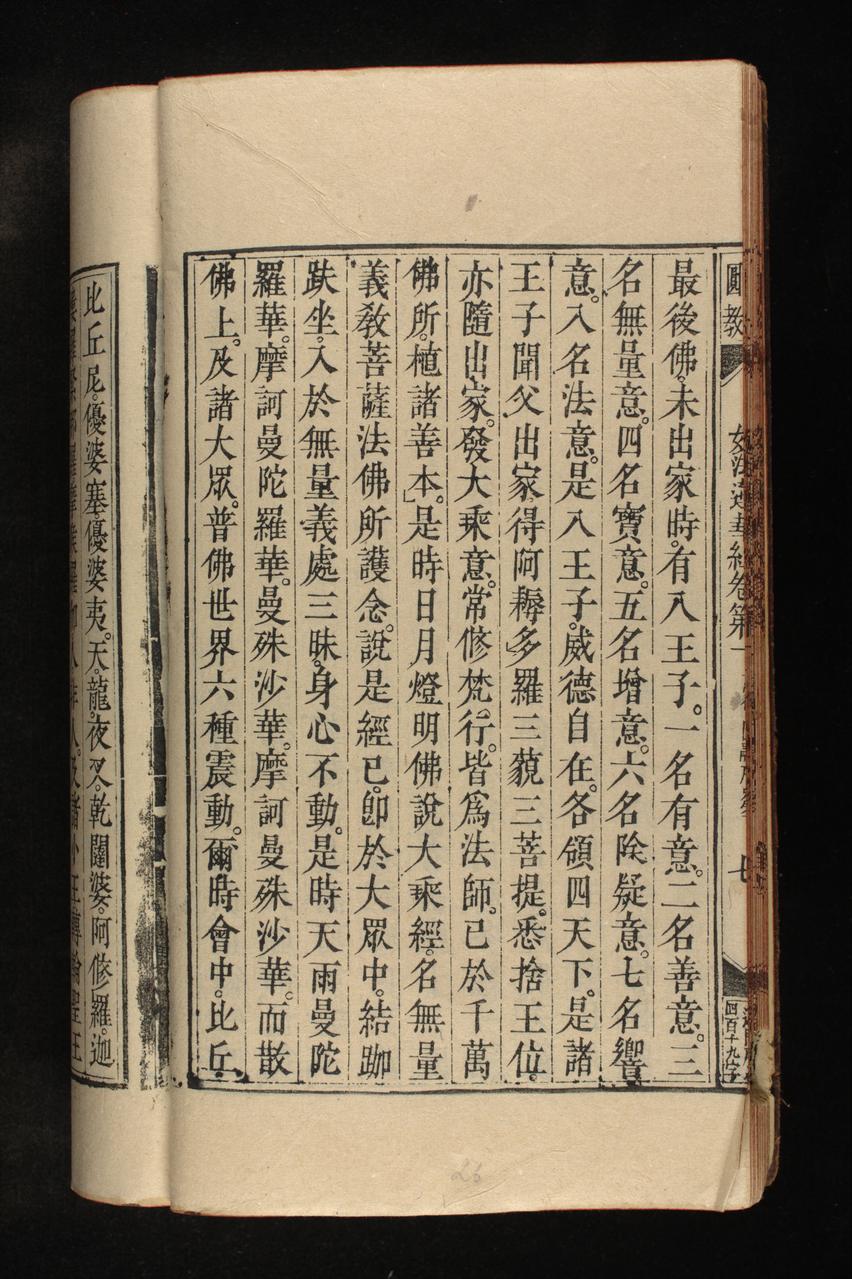 圓教 妙法蓮華經卷第一 七
四百十九字
最後佛。未出家時。有八王子。一名有意。二名善意。三
名無量意。四名寶意。五名增意。六名除疑意。七名響
意。八名法意。是八王子。威德自在。各領四天下。是諸
王子聞父出家。得阿耨多羅三藐三菩提。悉捨王位。
亦隨出家。發大乘意。常修梵行。皆為法師。已於千萬
佛所。植諸善本。」是時日月燈明佛說大乘經。名無量
義教菩薩法佛所護念。說是經已。卽於大眾中。結跏
趺坐。入於無量義處三昧。身心不動。是時天雨曼陀
羅華。摩訶曼陀羅華。曼殊沙華。摩訶曼殊沙華。而散
佛上。及諸大眾。普佛世界六種震動。爾時會中。比丘。
比丘尼。優婆塞。優婆夷。天。龍。夜叉。乾闥婆。阿修羅。迦
人。及諸小王轉輪聖王
26